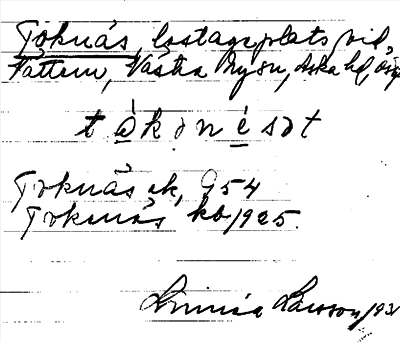 Toknäs, lastageplats vid
Vättern, Västra Ny sn, Aska hd, Ög
t å k ə n é s ə t
Toknäs ek, 954
Toknäs kb 1925.
Linnéa Larsson, 193